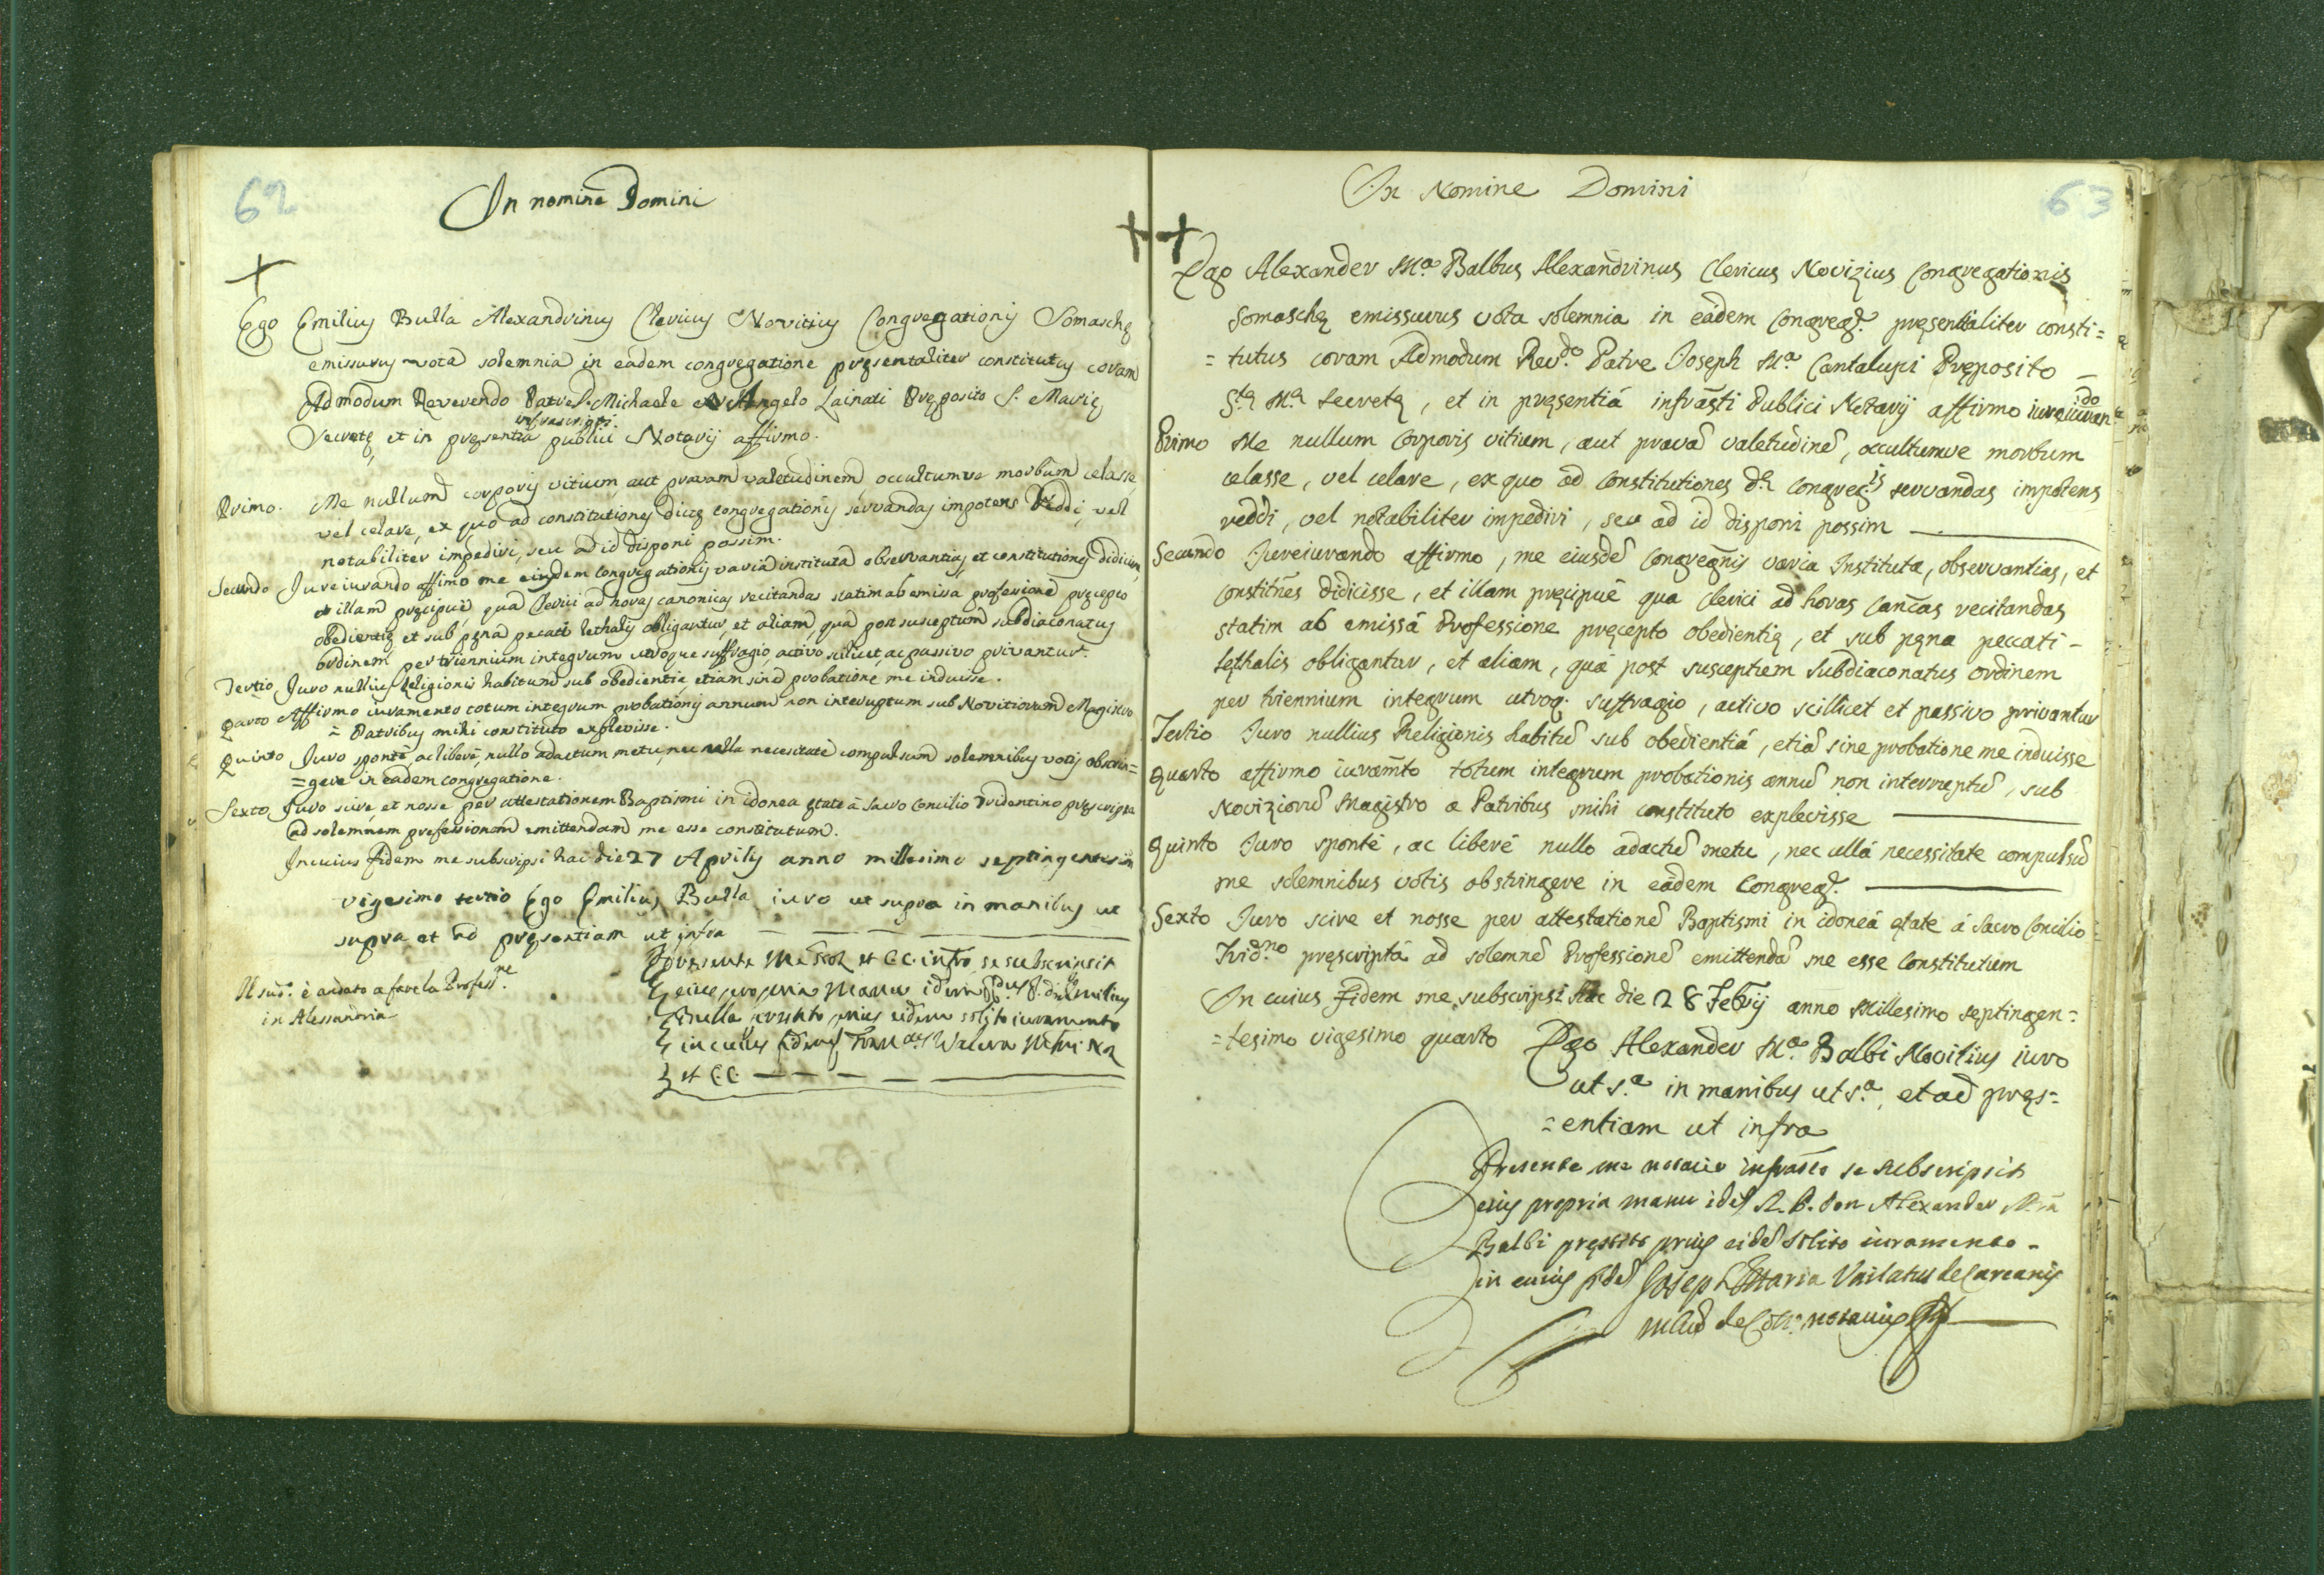 62
In nomine Domini
Ego Emilius Bulla Alexandrinus Clericus Novitius Congregationis Somaschę
emissurus vota solemnia in eadem congregatione pręsentaliter constitutus coram
Admodum Reverendo Patre D. Michaele Angelo Lainati Pręposito S. Marię
infrascripti
Secretę et in pręsentia publici Notarij affirmo.
Primo. Me nullum corporis vitium, aut pravam valetudinem, occultumve morbum celasse
vel celare, ex quo ad constitutiones dictę congregationis servandas impotens reddi, vel
notabiliter impediri, seu ad id disponi possim.
Secundo Jureiurando affimo me eiusdem congregationis varia instituta observantias, et constitutiones didicisse,
et illam pręcipuè, qua Clerici ad horas canonicas recitandas statim ab emissa professione pręcepto
obedientię et sub pęna pecati lethalis obligantur, et aliam, qua post susceptum subdiaconatus
ordinem per triennium integrum utroque suffragio, activo scilicet, ac passivo privantur.
Tertio Juro nullius Religionis habitum sub obedientia, etiam sine probatione me induisse.
Quarto Affirmo iuramento totum integrum probationis annum non interuptum sub Novitiorum Magistro
= Patribus mihi constituto explevisse.
Quinto Juro sponte, ac libere, nullo adactum metu, nec ulla necesitate compulsum solemnibus votis obstrin=
=gere in eadem congregatione.
Sexto Juro scire, et nosse per attestationem Baptismi in idonea ętate à sacro Concilio Tridentino pręscripta
ad solemnem professionem emittendam me esse constitutum.
In cuius fidem me subscripsi hac die 27 Aprilis anno millesimo septingentesimo
vigesimo tertio Ego Emilius Bulla iuro ut supra in manibus ut
supra et ad pręsentiam ut infra
Il sud.º è andato a fare la Profess.ne
in Alessandria
Pręsente me et C.C. infro se subscripsit
eius propria manu idem
Bulla pręstito prius eidem solito iuramento
in cuius fidem
et C.C.
63
In Nomine Domini
Ego Alexander M.a Balbus Alexandrinus Clericus Novizius Congregationis
Somaschę emissurus vota solemnia in eadem Congreg.e pręsentialiter consti=
=tutus coram Admodum Rev.do Patre Joseph M.a Cantalupi Pręposito
S.tę M.ę Secretę, et in pręsentiá infrãsti Publici Notarij affirmo iureiuran.do
Primo Me nullum Corporis vitium, aut pravã valetudinẽ, occultumve morbum
celasse, vel celare, ex quo ad Constitutiones d.ę Congreg.is servandas impotens
reddi, vel notabiliter impediri, seu ad id disponi possim
Secundo Jureiurando affirmo, me eiusdẽ Congregñis varia Instituta, observantias, et
Constitñes didicisse, et illam pręcipuè qua Clerici ad horas Canc̃as recitandas
statim ab emissâ Professione pręcepto obedientię, et sub pęna peccati -
lęthalis obligantur, et aliam, quá post susceptum Subdiaconatus ordinem
per triennium integrum utroq. suffragio, activo scillicet et passivo privantur
Tertio Juro nullius Religionis habitũ sub obedientiâ, etiã sine probatione me induisse
Quarto affirmo iuram̃to totum integrum probationis annũ non interruptũ, sub
Noviziorũ Magistro a Patribus mihi constituto explevisse
Quinto Juro spontè, ac liberè nullo adactũ metu, nec ullâ necessitate compulsũ
me solemnibus votis obstringere in eâdem Congreg.e
Sexto Juro scire et nosse per attestationẽ Baptismi in idoneâ ętate á Sacro Concilio
Trid.no pręscriptâ ad solemnẽ Professionẽ emittendã me esse Constitutum
In cuius Fidem me subscripsi hac die 28 Febrij anno Millesimo septingen=
=tesimo vigesimo quarto Ego Alexander M.a Balbi Novitius iuro
ut s.a in manibus ut s.a, et ad pręs=
=entiam ut infra
Presente me notario infrãsto se subscripsit
eius propria manu idẽ R.P. Don Alexander M.ria
Balbi pręstito prius eidẽ solito iuramento -
in cuius fidẽ Joseph Maria Vailatus de Carcanis
notarius